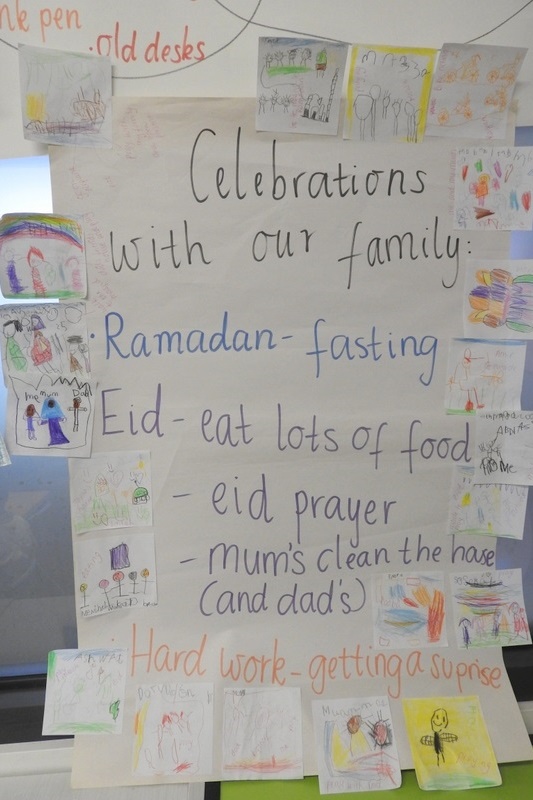 nk pen
·old desks
Celebrations
with our family:
·Ramadan - fasting
Eid - eat lots of food
- eid prayer
- mum's clean the hase
(and dad's)
· Hard work - getting a suprise
me mum Dad